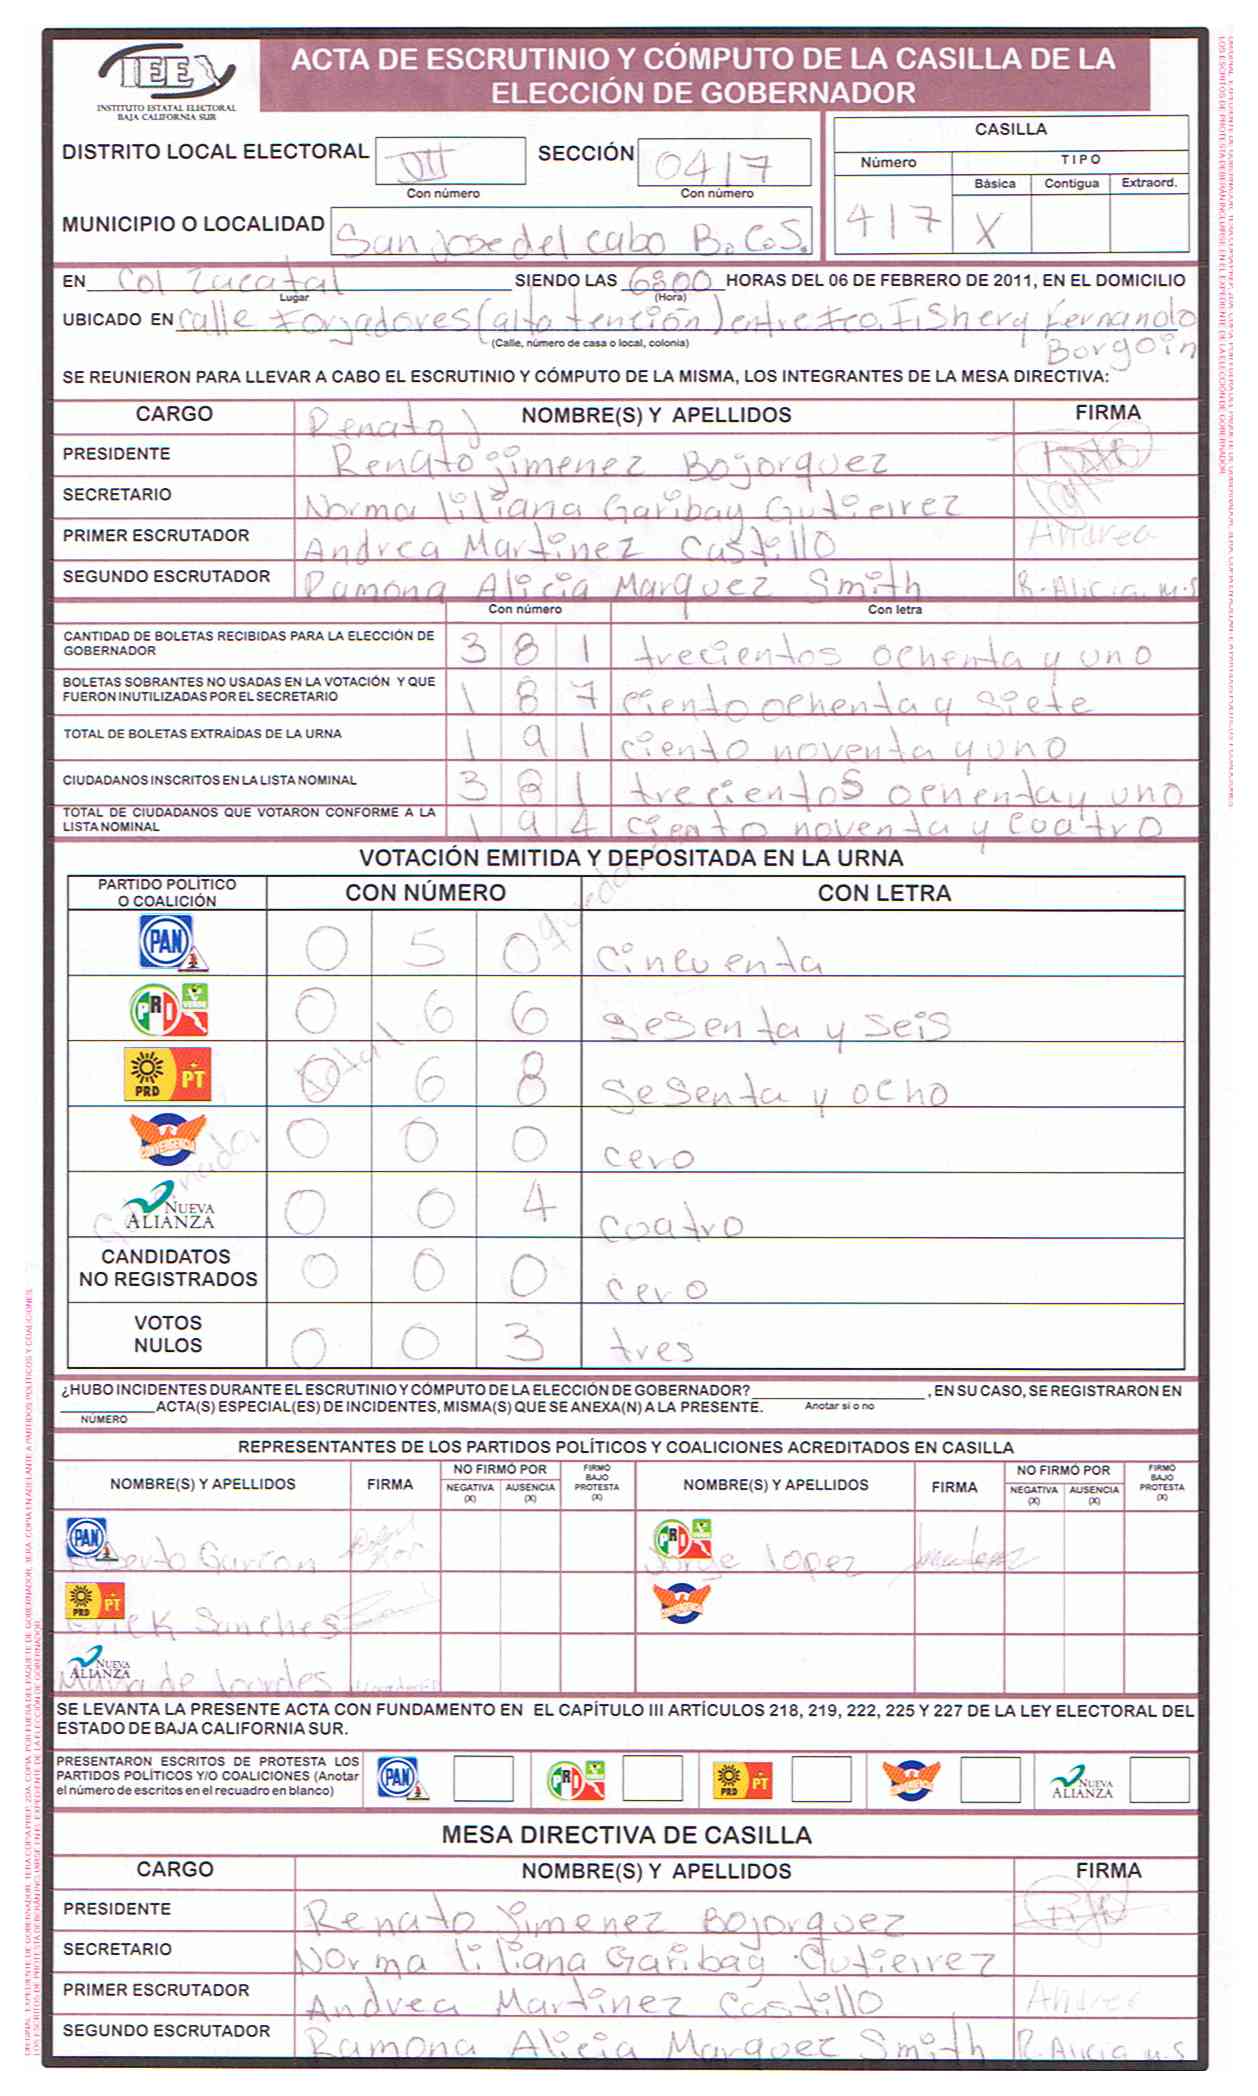 IEE
INSTITUTO ESTATAL ELECTORAL
BAJA CALIFORNIA SUR
ACTA DE ESCRUTINIO Y CÓMPUTO DE LA CASILLA DE LA
ELECCIÓN DE GOBERNADOR
DISTRITO LOCAL ELECTORAL VII SECCIÓN 0417
Con número Con número
MUNICIPIO O LOCALIDAD San Jose del cabo B.C.S.
CASILLA
Número TIPO
Básica Contigua Extraord.
417 X
EN Col Zacatal SIENDO LAS 6:00 HORAS DEL 06 DE FEBRERO DE 2011, EN EL DOMICILIO
Lugar (Hora)
UBICADO EN calle Forjadores (alta tención) entre Fco. Fisher y Fernando
Borgoin
(Calle, número de casa o local, colonia)
SE REUNIERON PARA LLEVAR A CABO EL ESCRUTINIO Y CÓMPUTO DE LA MISMA, LOS INTEGRANTES DE LA MESA DIRECTIVA:
CARGO NOMBRE(S) Y APELLIDOS FIRMA
Renato J
PRESIDENTE Renato jimenez Bojorquez
SECRETARIO Norma liliana Garibay Gutierrez
PRIMER ESCRUTADOR Andrea Martinez Castillo Andrea
SEGUNDO ESCRUTADOR Ramona Alicia Marquez Smith R. Alicia. M.S
Con número Con letra
CANTIDAD DE BOLETAS RECIBIDAS PARA LA ELECCIÓN DE
GOBERNADOR 3 8 1 trecientos ochenta y uno
BOLETAS SOBRANTES NO USADAS EN LA VOTACIÓN Y QUE
FUERON INUTILIZADAS POR EL SECRETARIO 1 8 7 ciento ochenta y siete
TOTAL DE BOLETAS EXTRAÍDAS DE LA URNA 1 9 1 ciento noventa y uno
CIUDADANOS INSCRITOS EN LA LISTA NOMINAL 3 8 1 trecientos ochenta y uno
TOTAL DE CIUDADANOS QUE VOTARON CONFORME A LA
LISTA NOMINAL 1 9 4 ciento noventa y cuatro
VOTACIÓN EMITIDA Y DEPOSITADA EN LA URNA
PARTIDO POLÍTICO
O COALICIÓN CON NÚMERO CON LETRA
PAN 0 5 0 cincuenta
PRI VERDE 0 6 6 sesenta y seis
PRD PT 0 6 8 sesenta y ocho
CONVERGENCIA 0 0 0 cero
NUEVA ALIANZA 0 0 4 cuatro
CANDIDATOS
NO REGISTRADOS 0 0 0 cero
VOTOS
NULOS 0 0 3 tres
¿HUBO INCIDENTES DURANTE EL ESCRUTINIO Y CÓMPUTO DE LA ELECCIÓN DE GOBERNADOR? , EN SU CASO, SE REGISTRARON EN
ACTA(S) ESPECIAL(ES) DE INCIDENTES, MISMA(S) QUE SE ANEXA(N) A LA PRESENTE. Anotar si o no
NÚMERO
REPRESENTANTES DE LOS PARTIDOS POLÍTICOS Y COALICIONES ACREDITADOS EN CASILLA
NOMBRE(S) Y APELLIDOS FIRMA NO FIRMÓ POR NEGATIVA (X) AUSENCIA (X) FIRMÓ BAJO PROTESTA (X) NOMBRE(S) Y APELLIDOS FIRMA NO FIRMÓ POR NEGATIVA (X) AUSENCIA (X) FIRMÓ BAJO PROTESTA (X)
PAN PRI VERDE
Jorge lopez
PRD PT CONVERGENCIA
Erick Sanches
NUEVA ALIANZA
Maria de lourdes
SE LEVANTA LA PRESENTE ACTA CON FUNDAMENTO EN EL CAPÍTULO III ARTÍCULOS 218, 219, 222, 225 Y 227 DE LA LEY ELECTORAL DEL
ESTADO DE BAJA CALIFORNIA SUR.
PRESENTARON ESCRITOS DE PROTESTA LOS
PARTIDOS POLÍTICOS Y/O COALICIONES (Anotar
el número de escritos en el recuadro en blanco)
PAN PRI VERDE PRD PT CONVERGENCIA NUEVA ALIANZA
MESA DIRECTIVA DE CASILLA
CARGO NOMBRE(S) Y APELLIDOS FIRMA
PRESIDENTE Renato jimenez Bojorquez
SECRETARIO Norma liliana Garibay Gutierrez
PRIMER ESCRUTADOR Andrea Martinez Castillo Andrea
SEGUNDO ESCRUTADOR Ramona Alicia Marquez Smith R. Alicia M.S